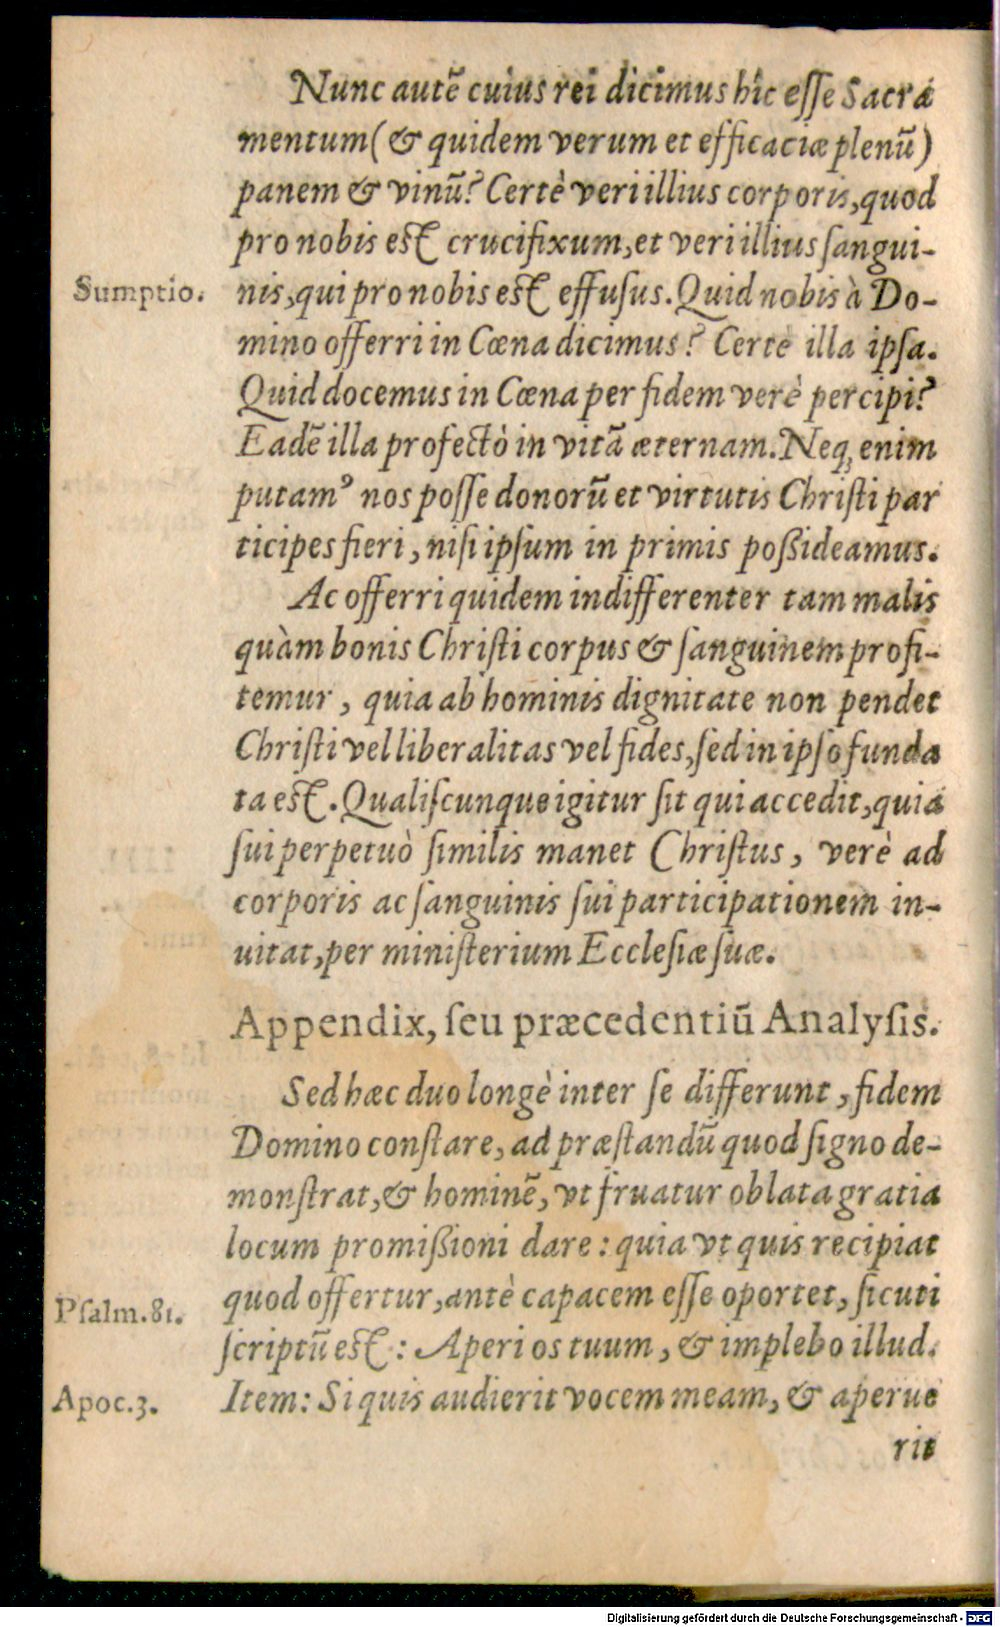 Nunc autē cuius rei dicimus hîc esse Sacra
mentum (& quidem verum et efficaciæ plenū)
panem & vinū? Certè veri illius corporis, quod
pro nobis est crucifixum, et veri illius sangui-
Sumptio.
nis, qui pro nobis est effusus. Quid nobis à Do-
mino offerri in Cœna dicimus? Certè illa ipsa.
Quid docemus in Cœna per fidem verè percipi?
Eadē illa profectò in vitā æternam. Neq; enim
putamꝰ nos posse donorū et virtutis Christi par
ticipes fieri, nisi ipsum in primis poßideamus.
Ac offerri quidem indifferenter tam malis
quàm bonis Christi corpus & sanguinem profi-
temur, quia ab hominis dignitate non pendet
Christi vel liberalitas vel fides, sed in ipso funda
ta est. Qualiscunque igitur sit qui accedit, quia
sui perpetuò similis manet Christus, verè ad
corporis ac sanguinis sui participationem in-
uitat, per ministerium Ecclesiæ suæ.
Appendix, seu præcedentiū Analysis.
Sed hæc duo longè inter se differunt, fidem
Domino constare, ad præstandū quod signo de-
monstrat, & hominē, vt fruatur oblata gratia
locum promißioni dare: quia vt quis recipiat
quod offertur, antè capacem esse oportet, sicuti
Psalm. 81.
scriptū est: Aperi os tuum, & implebo illud.
Apoc. 3.
Item: Si quis audierit vocem meam, & aperue
rit
Digitalisierung gefördert durch die Deutsche Forschungsgemeinschaft - DFG